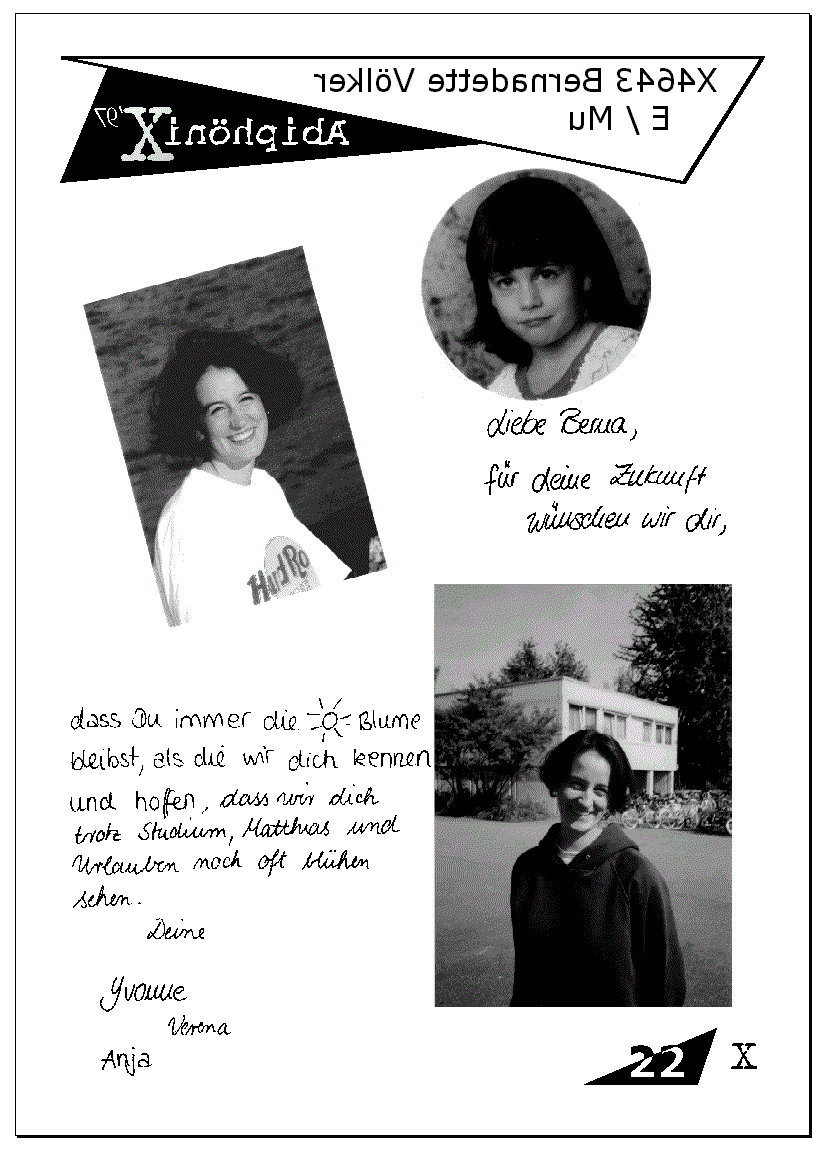 X4643 Bernadette Völker
E / Mu
AbiphöniX '97
Liebe Berna,
für deine Zukunft
wünschen wir dir,
Hard Ro
dass Du immer die Blume
bleibst, als die wir dich kennen
und hoffen, dass wir dich
trotz Studium, Matthias und
Urlauben noch oft blühen
sehen.
Deine
Yvonne
Verena
Anja
22 X